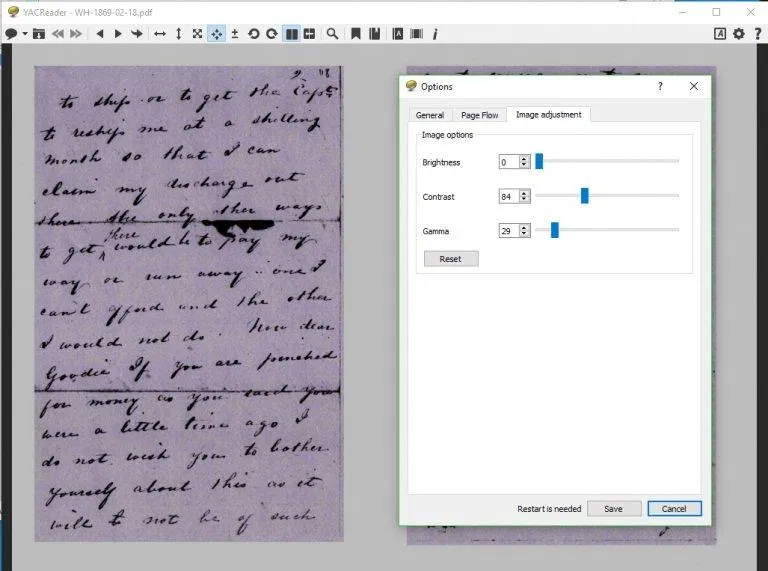 YACReader - WH-1869-02-18.pdf
2. 118
to ships or to get the Capt
to reship me at a shilling
month so that I can
claim my discharge out
there the only other ways
there
to get ^ would be to pay my
way or run away .. one I
can't afford and the other
I would not do. Now dear
Goodie If you are pinched
for money as you said you
were a little time ago I
do not wish you to bother
yourself about this as it
will to not be of such
Options
General Page Flow Image adjustment
Image options
Brightness 0
Contrast 84
Gamma 29
Reset
Restart is needed Save Cancel